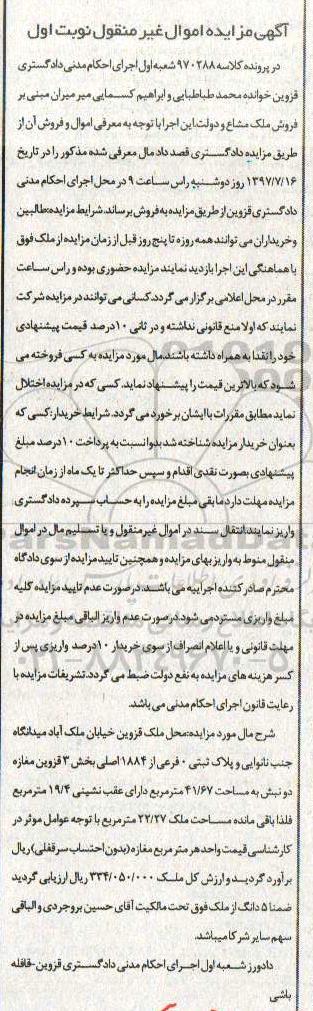 آگهی مزایده اموال غیر منقول نوبت اول
در پرونده کلاسه ۹۷۰۲۸۸ شعبه اول اجرای احکام مدنی دادگستری
قزوین خوانده محمد طباطبایی و ابراهیم کسمایی میر میران مبنی بر
فروش ملک مشاع و دولت.این اجرا با توجه به معرفی اموال و فروش آن از
طریق مزایده دادگستری قصد داد مال معرفی شده مذکور را در تاریخ
۱۳۹۷/۷/۱۶ روز دوشنبه راس ساعت ۹ در محل اجرای احکام مدنی
دادگستری قزوین از طریق مزایده به فروش برساند.شرایط مزایده:طالبین
و خریداران می توانند همه روزه تا پنج روز قبل از زمان مزایده از ملک فوق
با هماهنگی این اجرا بازدید نمایند مزایده حضوری بوده و راس ساعت
مقرر در محل اعلامی برگزار می گردد.کسانی می توانند در مزایده شرکت
نمایند که اولا منع قانونی نداشته و در ثانی ۱۰درصد قیمت پیشنهادی
خود را نقدا به همراه داشته باشند.مال مورد مزایده به کسی فروخته می
شود که بالاترین قیمت را پیشنهاد نماید. کسی که در مزایده اختلال
نماید مطابق مقررات با ایشان برخورد می گردد.شرایط خریدار:کسی که
بعنوان خریدار مزایده شناخته شد بدوا نسبت به پرداخت ۱۰درصد مبلغ
پیشنهادی بصورت نقدی اقدام و سپس حداکثر تا یک ماه از زمان انجام
مزایده مهلت دارد مابقی مبلغ مزایده را به حساب سپرده دادگستری
واریز نمایند.انتقال سند در اموال غیر منقول و یا تسلیم مال در اموال
منقول منوط به واریز بهای مزایده و همچنین تایید مزایده از سوی دادگاه
محترم صادر کننده اجراییه می باشد.در صورت عدم تایید مزایده کلیه
مبلغ واریزی مسترد می شود.در صورت عدم واریز الباقی مبلغ مزایده در
مهلت قانونی و یا اعلام انصراف از سوی خریدار ۱۰درصد واریزی پس از
کسر هزینه های مزایده به نفع دولت ضبط می گردد.تشریفات مزایده با
رعایت قانون اجرای احکام مدنی می باشد.
شرح مال مورد مزایده:محل ملک قزوین خیابان ملک آباد میدانگاه
جنب نانوایی و پلاک ثبتی ۰ فرعی از ۱۸۸۴ اصلی بخش ۳ قزوین مغازه
دو نبش به مساحت ۴۱/۶۷ مترمربع دارای عقب نشینی ۱۹/۴ مترمربع
فلذا باقی مانده مساحت ملک ۲۲/۲۷ مترمربع با توجه عوامل موثر در
کارشناسی قیمت واحد هر متر مربع مغازه (بدون احتساب سرقفلی) ریال
برآورد گردید و ارزش کل ملک ۳۳۴/۰۵۰/۰۰۰ ریال ارزیابی گردید
ضمنا ۵ دانگ از ملک فوق تحت مالکیت آقای حسین بروجردی و الباقی
سهم سایر شرکا میباشد.
دادورز شعبه اول اجرای احکام مدنی دادگستری قزوین-قافله
باشی